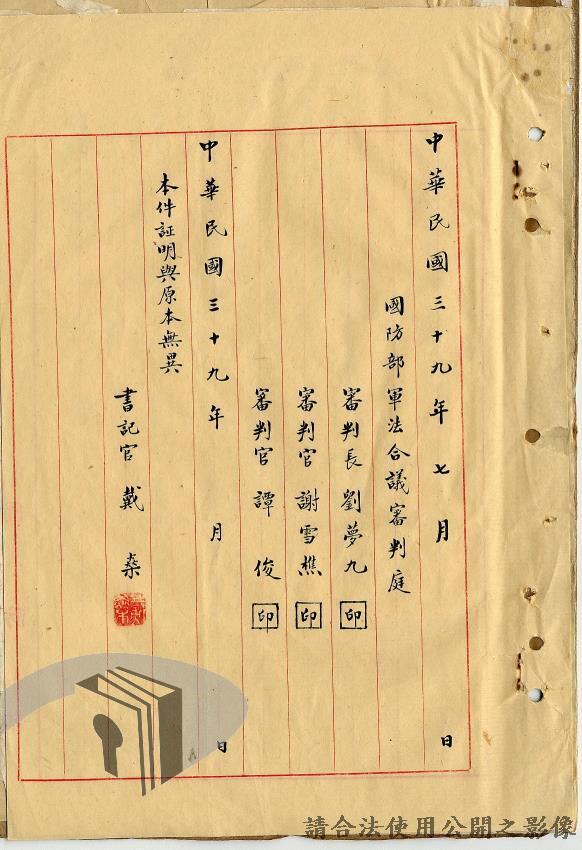 中華民國三十九年七月 日
國防部軍法合議審判庭
審判長劉夢九 印
審判官謝雪樵 印
審判官譚俊 印
中華民國三十九年 月 日
本件証明與原本無異
書記官戴燊
請合法使用公開之影像